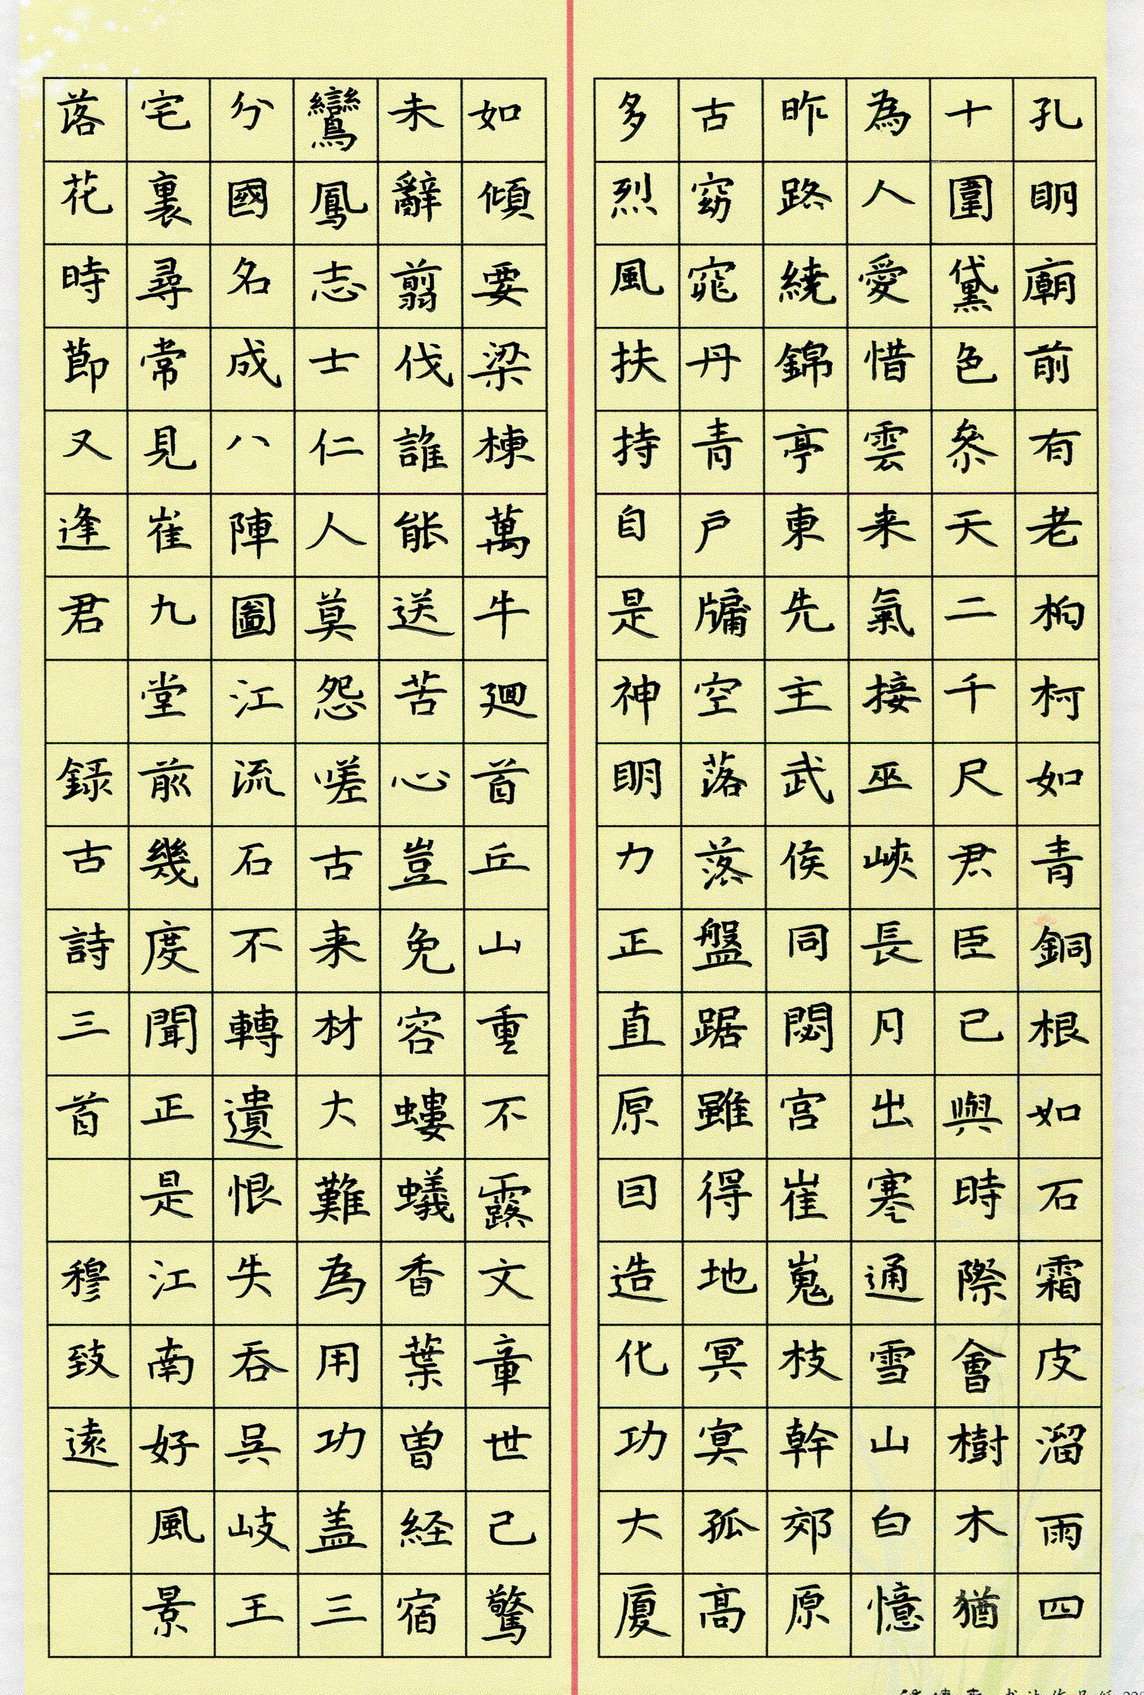 孔明廟前有老柏柯如青銅根如石霜皮溜雨四
十圍黛色參天二千尺君臣已與時際會樹木猶
為人愛惜雲来氣接巫峽長月出寒通雪山白憶
昨路繞錦亭東先主武侯同閟宮崔嵬枝幹郊原
古窈窕丹青戶牖空落落盤踞雖得地冥冥孤高
多烈風扶持自是神明力正直原因造化功大廈
如傾要梁棟萬牛迴首丘山重不露文章世已驚
未辭翦伐誰能送苦心豈免容螻蟻香葉曾経宿
鸞鳳志士仁人莫怨嗟古来材大難為用功盖三
分國名成八陣圖江流石不轉遺恨失吞吳岐王
宅裏尋常見崔九堂前幾度聞正是江南好風景
落花時節又逢君 錄古詩三首 穆致遠